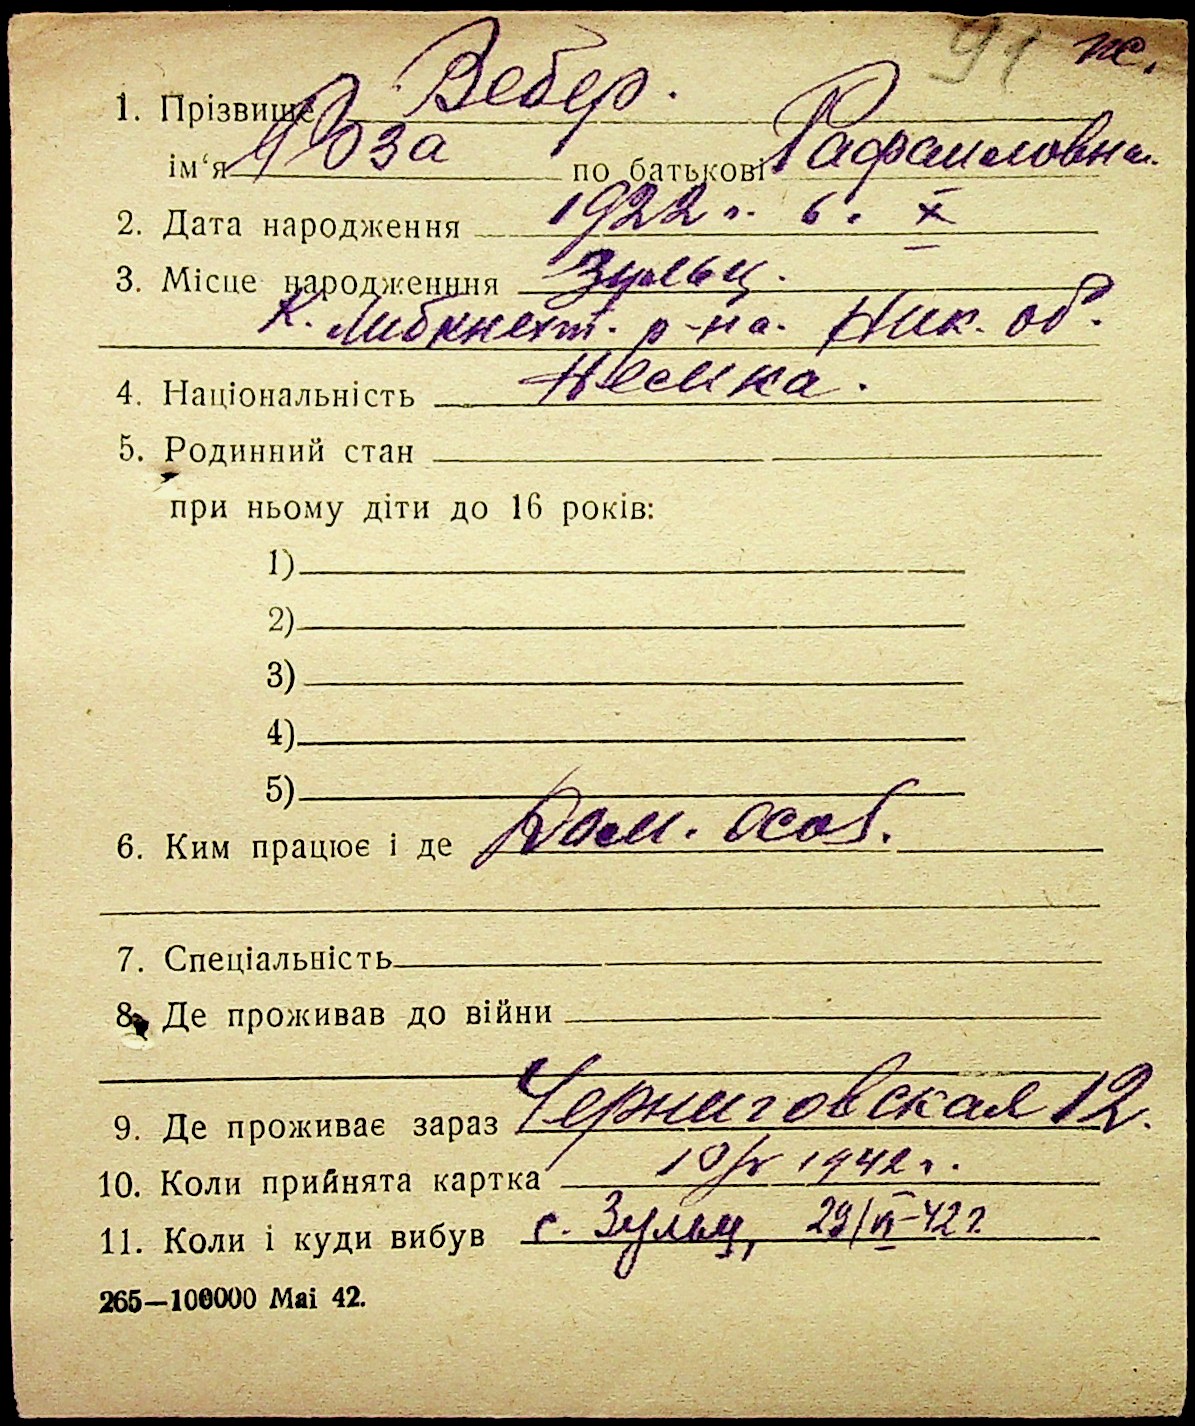 91 нс.
1. Прізвище Вебер.
ім‘я Роза по батькові Рафаиловна.
2. Дата народження 1922 г. 6. X
3. Місце народженння Зульц.
К. Либкнехт. р-на. Ник. об.
4. Національність Немка.
5. Родинний стан
при ньому діти до 16 років:
1)
2)
3)
4)
5)
6. Ким працює і де Дом. особ.
7. Спеціальність
8. Де проживав до війни
9. Де проживає зараз Черниговская 12.
10. Коли прийнята картка 10/V 1942 г.
11. Коли і куди вибув с. Зульц, 29/VI-42 г.
265—100000 Mai 42.